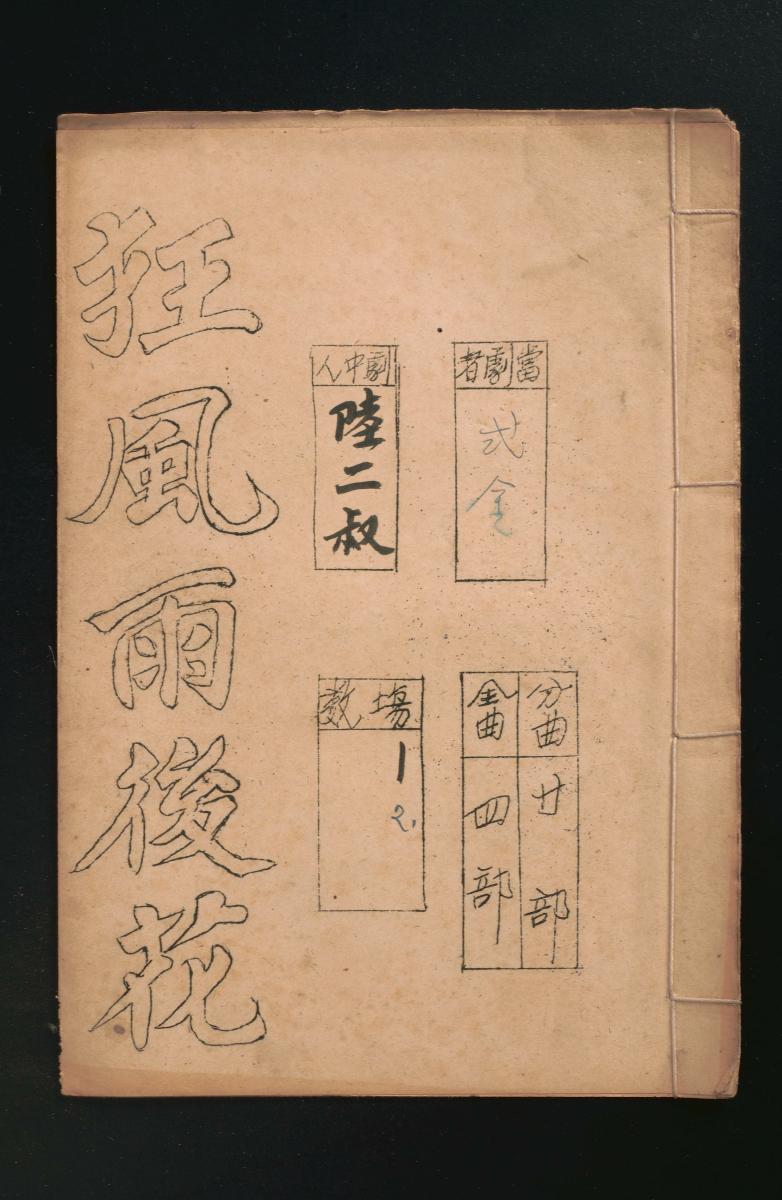 當劇者
弍金
劇中人
陸二叔
分曲
廿部
全曲
四部
場數
1
2.
狂風雨後花